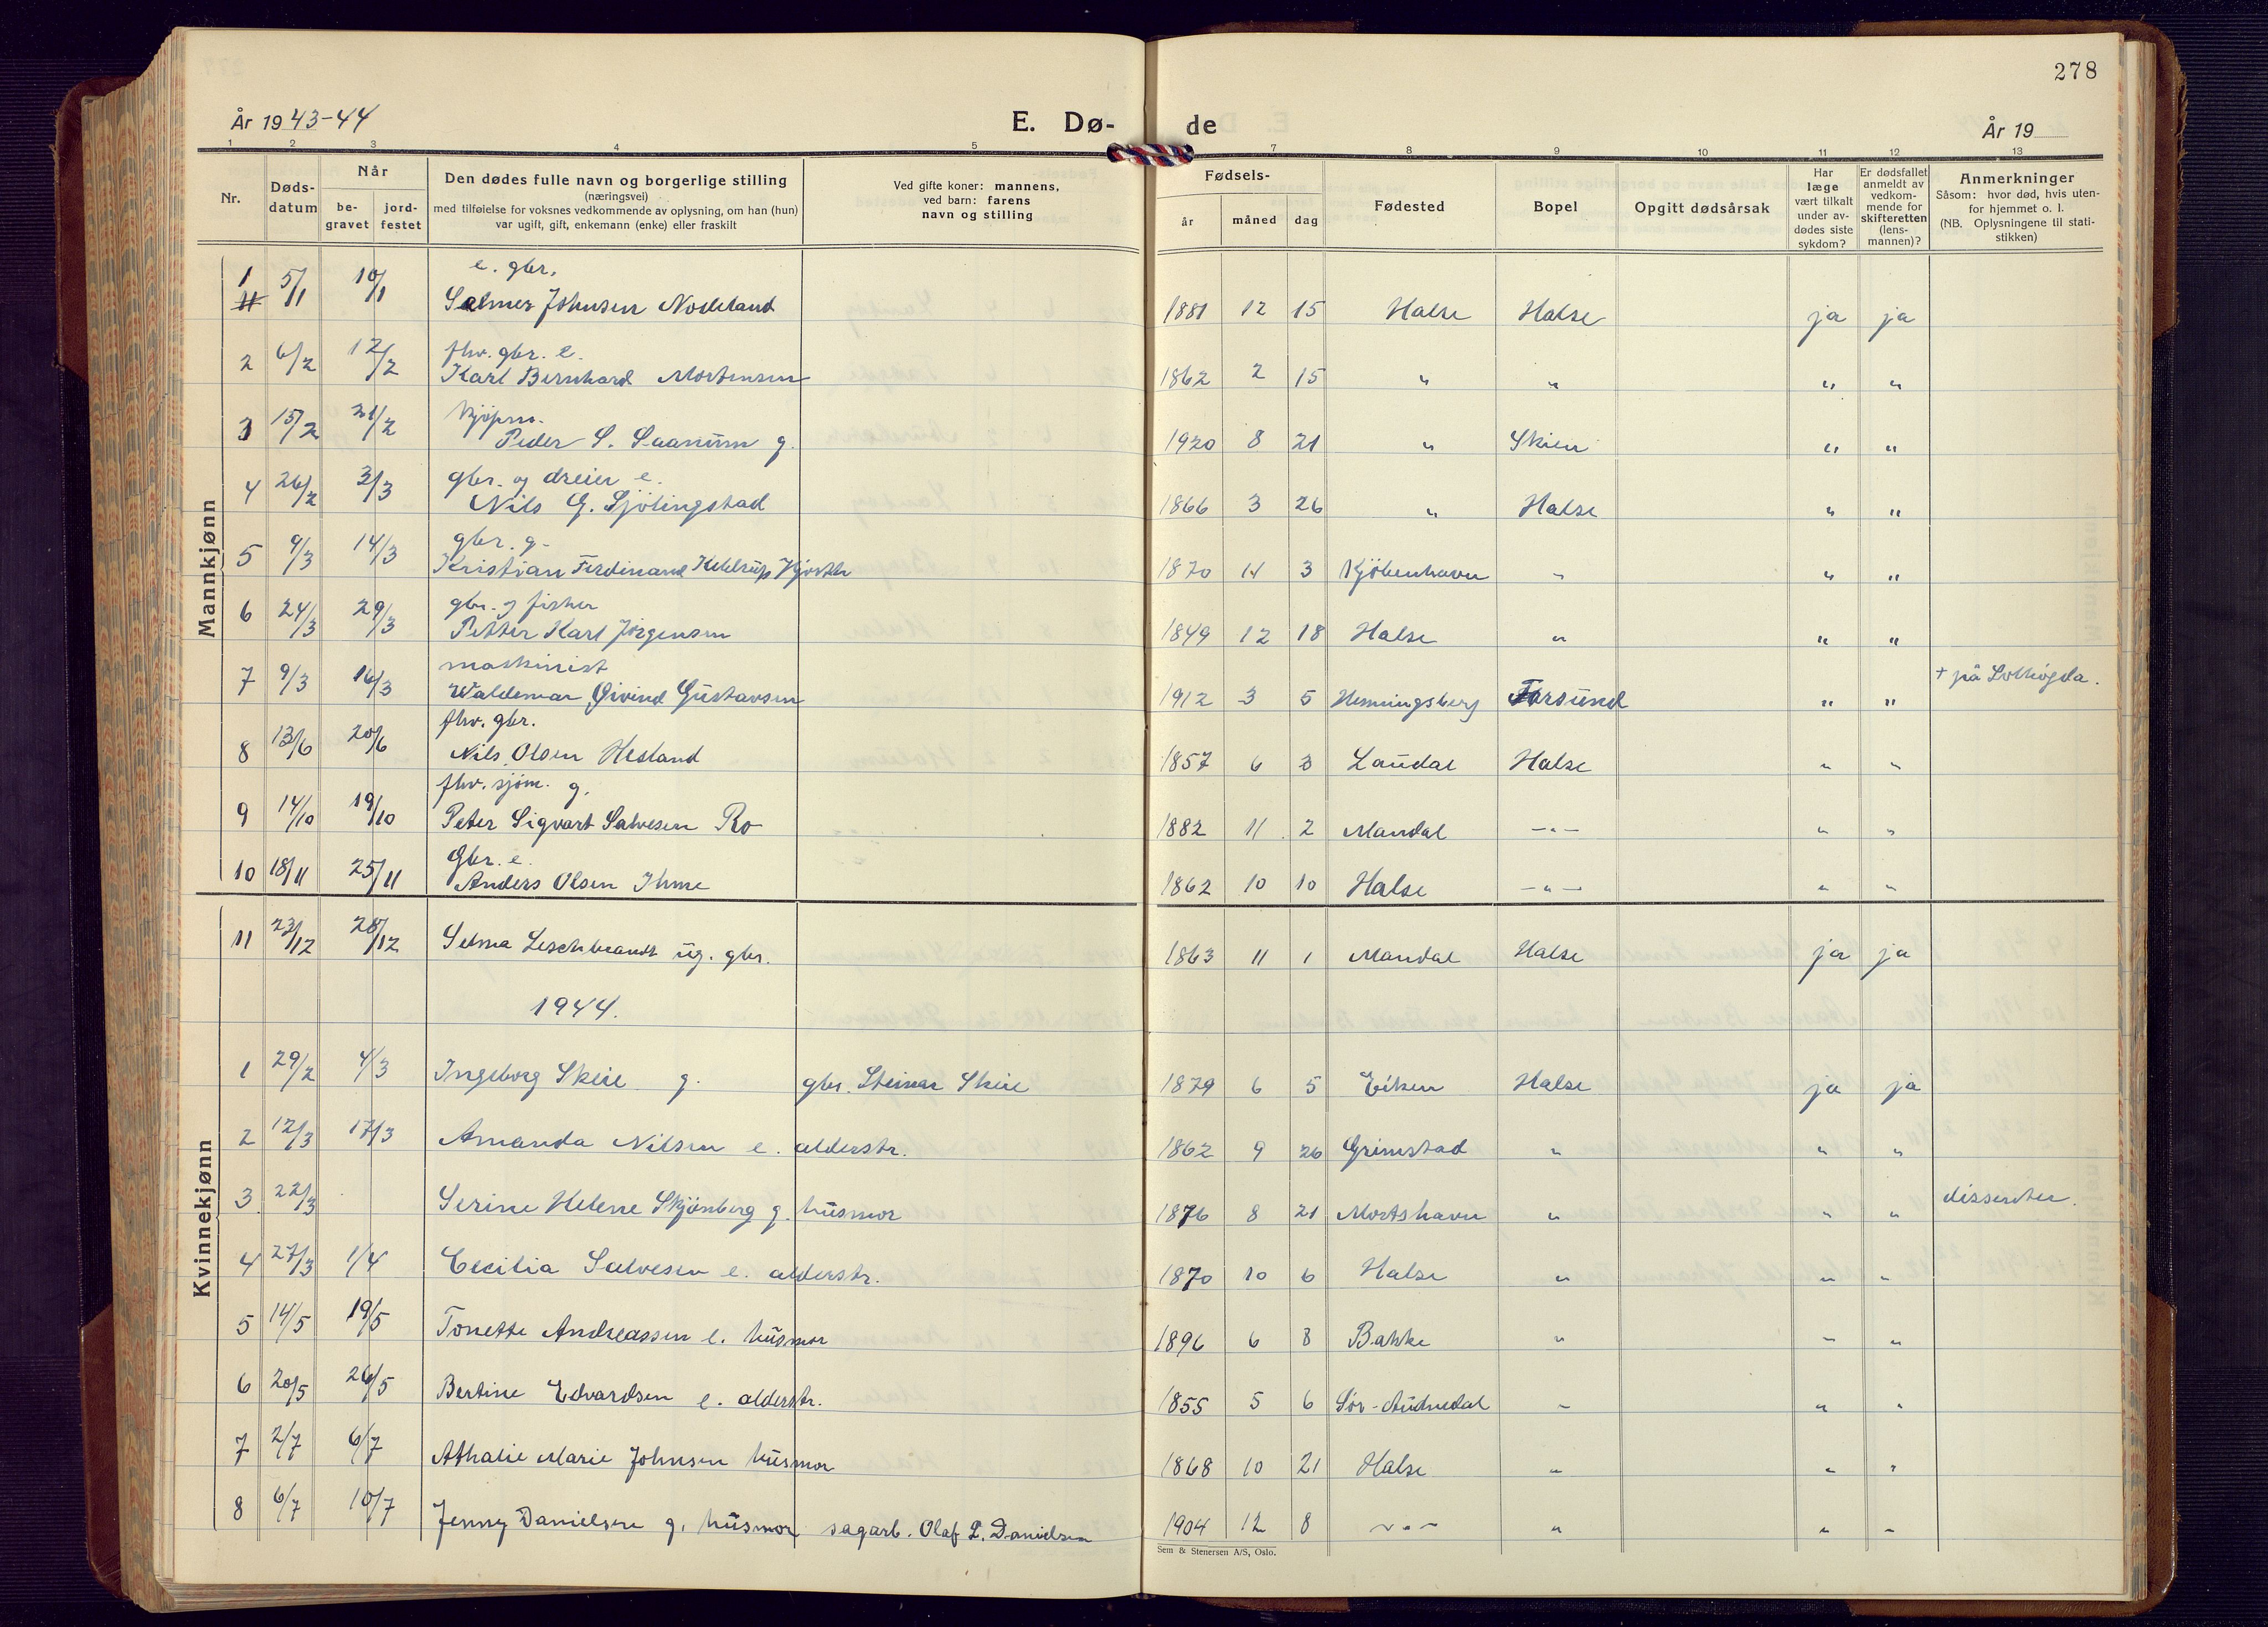 278
År 1943-44
E. Dø-
de
År 19
1 2 3 4 5 7 8 9 10 11 12 13
Nr.
Døds-
datum
Når
be-
gravet
jord-
festet
Den dødes fulle navn og borgerlige stilling
(næringsvei)
med tilføielse for voksnes vedkommende av oplysning, om han (hun)
var ugift, gift, enkemann (enke) eller fraskilt
Ved gifte koner: mannens,
ved barn: farens
navn og stilling
Fødsels-
år
måned
dag
Fødested
Bopel
Opgitt dødsårsak
Har
læge
vært tilkalt
under av-
dødes siste
sykdom?
Er dødsfallet
anmeldt av
vedkom-
mende for
skifteretten
(lens-
mannen)?
Anmerkninger
Såsom: hvor død, hvis uten-
for hjemmet o. l.
(NB. Oplysningene til stati-
stikken)
Mannkjønn
e. gbr.
1 5/1 10/1 Salmer Johnsen Nodeland 1881 12 15 Halse Halse ja ja
11
fhv. gbr. e.
2 6/2 12/2 Karl Bernhard Mortensen 1862 2 15 " " " "
kjøpm.
3 15/2 21/2 Peder S. Saanum g. 1920 8 21 " Skien " "
gbr. og dreier e.
4 26/2 3/3 Nils G. Sjölingstad 1866 3 26 " Halse " "
gbr. g.
5 9/3 14/3 Kristian Ferdinand 1870 11 3 Kjöbenhavn " " "
gbr. og fisker
6 24/3 29/3 Petter Karl Jörgensen 1849 12 18 Halse " " "
maskinist
7 9/3 16/3 Waldemar Öivind Gustavsen 1912 3 5 Henningsberg Farsund " " + på
fhv. gbr.
8 13/6 20/6 Nils Olsen Hesland 1857 6 3 Laudal Halse " "
fhv. sjøm. g.
9 14/10 19/10 Peter Sigvart Salvesen Ro 1882 11 2 Mandal -"- " "
Gbr. e.
10 18/11 25/11 Anders Olsen Ihme 1862 10 10 Halse -"- " "
Kvinnekjønn
11 23/12 28/12 Selma ug. gbr. 1863 11 1 Mandal Halse ja ja
1944.
1 29/2 4/3 Ingeborg Skeie g. gbr. Steinar Skeie 1879 6 5 Eiken Halse ja ja
2 12/3 17/3 Amanda Nilsen e. alderstr. 1862 9 26 Grimstad " " "
3 22/3 Serine Helene Skjönberg g. husmor 1876 8 21 Mortshavn " " " dissenter.
4 27/3 1/4 Cecilia Salvesen e. alderstr. 1870 10 6 Halse " " "
5 14/5 19/5 Tonette Andreassen e. husmor 1896 6 8 Bakke " " "
6 20/5 26/5 Bertine Edvardsen e. alderstr. 1855 5 6 Sör-Audnedal " " "
7 2/7 6/7 Athalie Marie Johnsen husmor 1868 10 21 Halse " " "
8 6/7 10/7 Jenny Danielsen g. husmor sagarb. Olaf P. Danielsen 1904 12 8 -"- " " "
Sem & Stenersen A/S, Oslo.